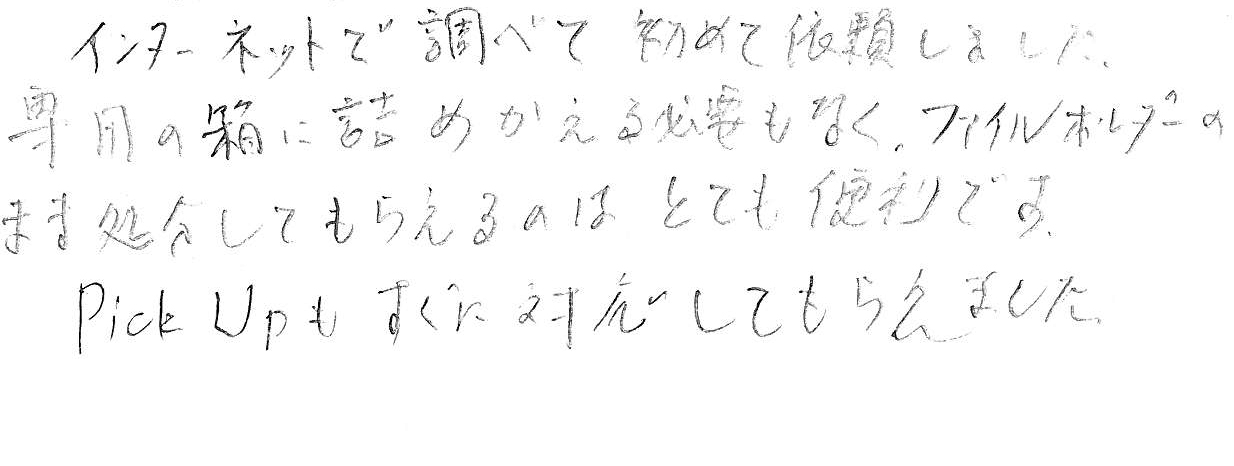 インターネットで調べて初めて依頼しました。
専用の箱に詰めかえる必要もなく、ファイルホルダーの
まま処分してもらえるのはとても便利です。
Pick Upもすぐに対応してもらえました。